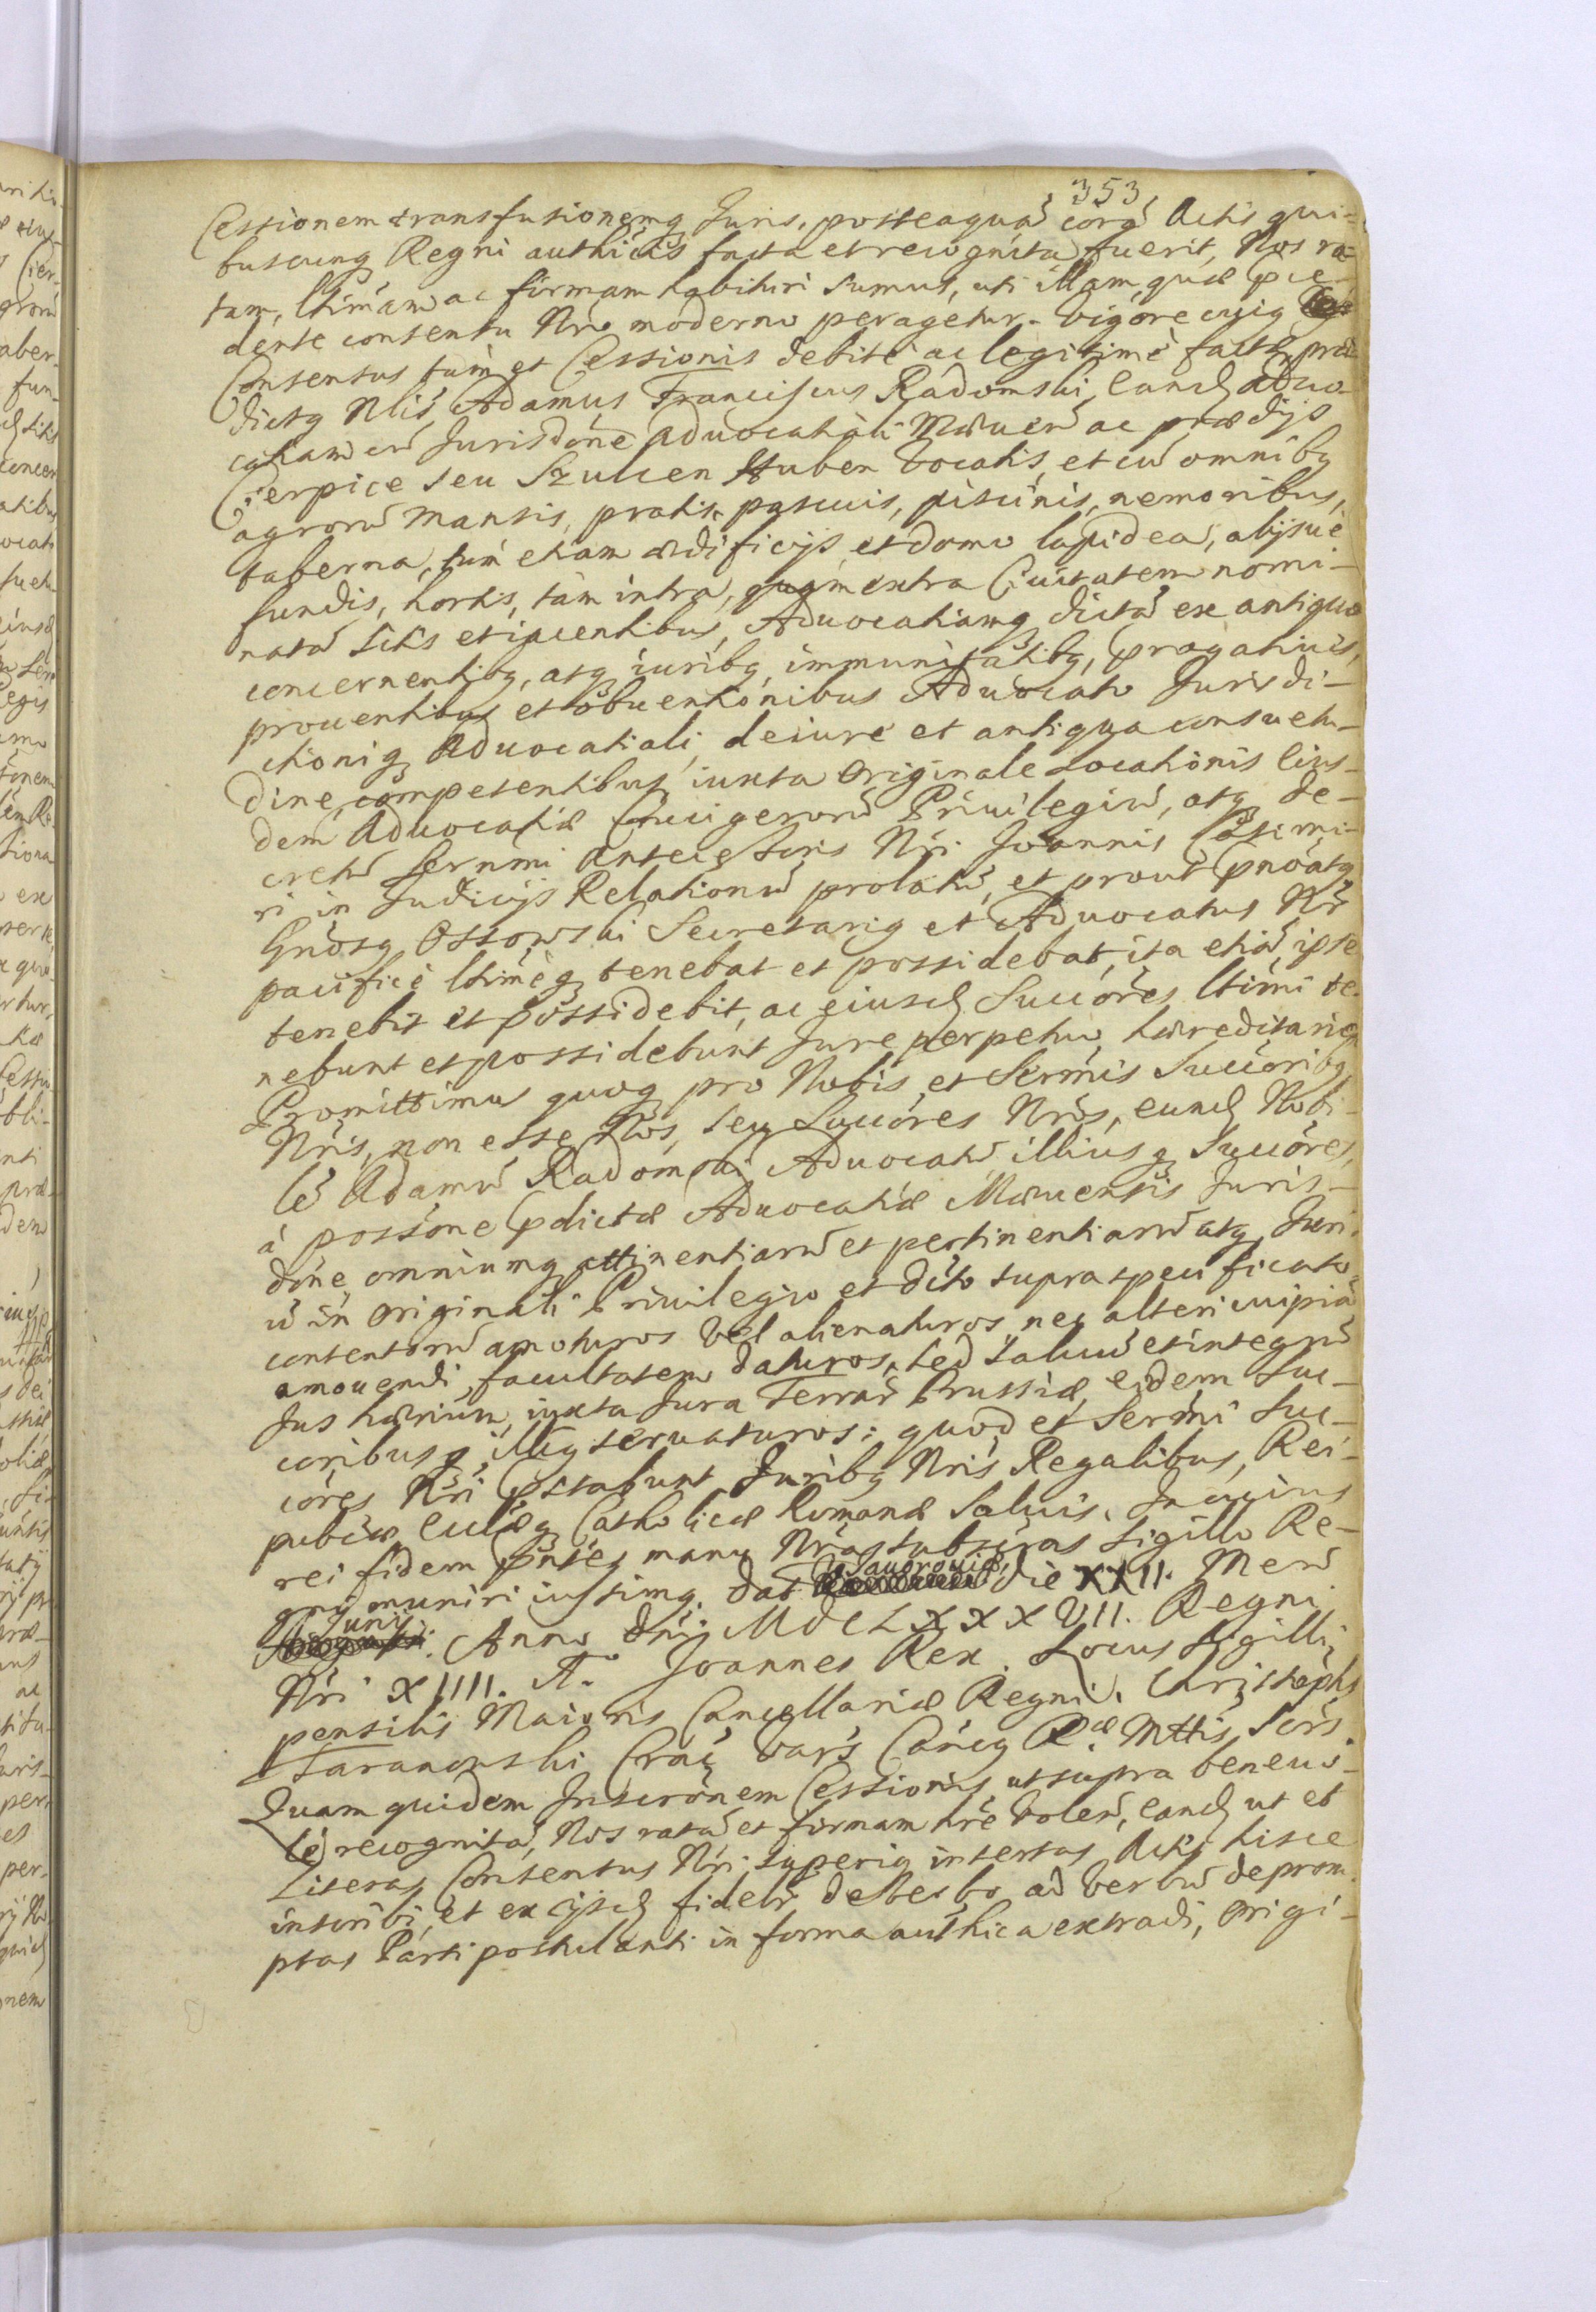 353
Cessionem transfusionemq Juris, posteaquã corã Actis qui-
buscunq Regni authicis facta et recognita fuerit, Nos ra-
tam, ltimam ac firmam habituri sumus, uti illam, quæ Pce-
dente consensu Nro moderno peragetur. Vigore cuiq
Consensus tum et Cessionis debitè ac legitimè factæ, præ-
dictq Nlis Adamus Franciscus Radomski, eand Aduo-
catiam cũ Jurisdóne Aduocatiali Mæuen ac prædijs
Cierpice seu Szulcen Huben vocatis, et cũ omnibq
agrorũ Mansis, pratis, pascuis, piscinis, nemoribus,
taberna, tùm etiam ædificijs et domo lapidea, alijsuè
fundis, hortis, tàm intra, quàm extra Ciuitatem nomi-
natã sitis et iacentibus, Aduocatiamq dictã ex antiquo
concernentibq, atq iuribq, immunitatibq, Prægatiuis,
prouentibus et obuentionibus Aduocato Jurisdi-
ctioniq Aduocatiali, de iure et antiqua consuetu-
dine, competentibus iuxta Originale Locationis eius-
dem Aduocatiæ Crucigerorũ Priuilegiũ, atq de-
cretũ Sernmi Antecessoris Nri Joannis Casimi-
ri in Judicijs Relationũ prolatũ, et prout Pnoatq
Gnosq Ossowski Secretariq et Aduocatus Nr
pacificè ltimèq tenebat et possidebat, ita etiã, ipse
tenebit et possidebit, ac eiusd Succóres ltimi te-
nebunt et possidebunt Jure perpetuo, hæreditarioq
Promittimus quoq pro Nobis, et Sermis Succóribq
Nris, non esse Nos, seu Succóres Nros, eund Nobi-
lẽ Adamũ Radomski Aduocatũ, illiusq Succóres,
à possóne Pdictæ Aduocatiæ Mæuensis Juris-
dóne, omniumq attinentiarũ et pertinentiarũ atq Juri
ũ in Originali Priuilegio et dcto supra specificato
contentorũ amoturos vel alienaturos, nec alteri cuipiã
amouendi, facultatem daturos, sed saluũ et integrũ
Jus hærium, iuxta Jura Terrar Prussiæ, eidem Suc-
coribusq illiq seruaturos: quod et Sermi Suc-
córes Nri Pstabunt. Juribq Nris Regalibus, Rei-
publcæ Eccliæq Catholicæ Romanæ Saluis. In cuius
rei fidem Pntes manu Nra subscras Sigillo Re-
gni muniri iussimq. Dat Jauoroviæ die XXII. Men
Junij. Anno Dni MDCLXXXVII. Regni
Nri XIIII. A. Joannes Rex. Locus Sigilli
pensilis Maioris Cancellariæ Regni. Christophs
Taranowski Crac Vars Cancq Ræ Mttis Scrs.
Quam quidem Inscrónem Cessionis, ut supra beneuo-
lè recognitã, Nos ratã et firmam hrè Volen, eand ut et
Literas Consensus Nri superiq insertas Actis hisce
inscribi, et ex ijsd fideltr de Verbo ad verbũ deprom-
ptas Parti postulanti in forma authica extradi, Origi-